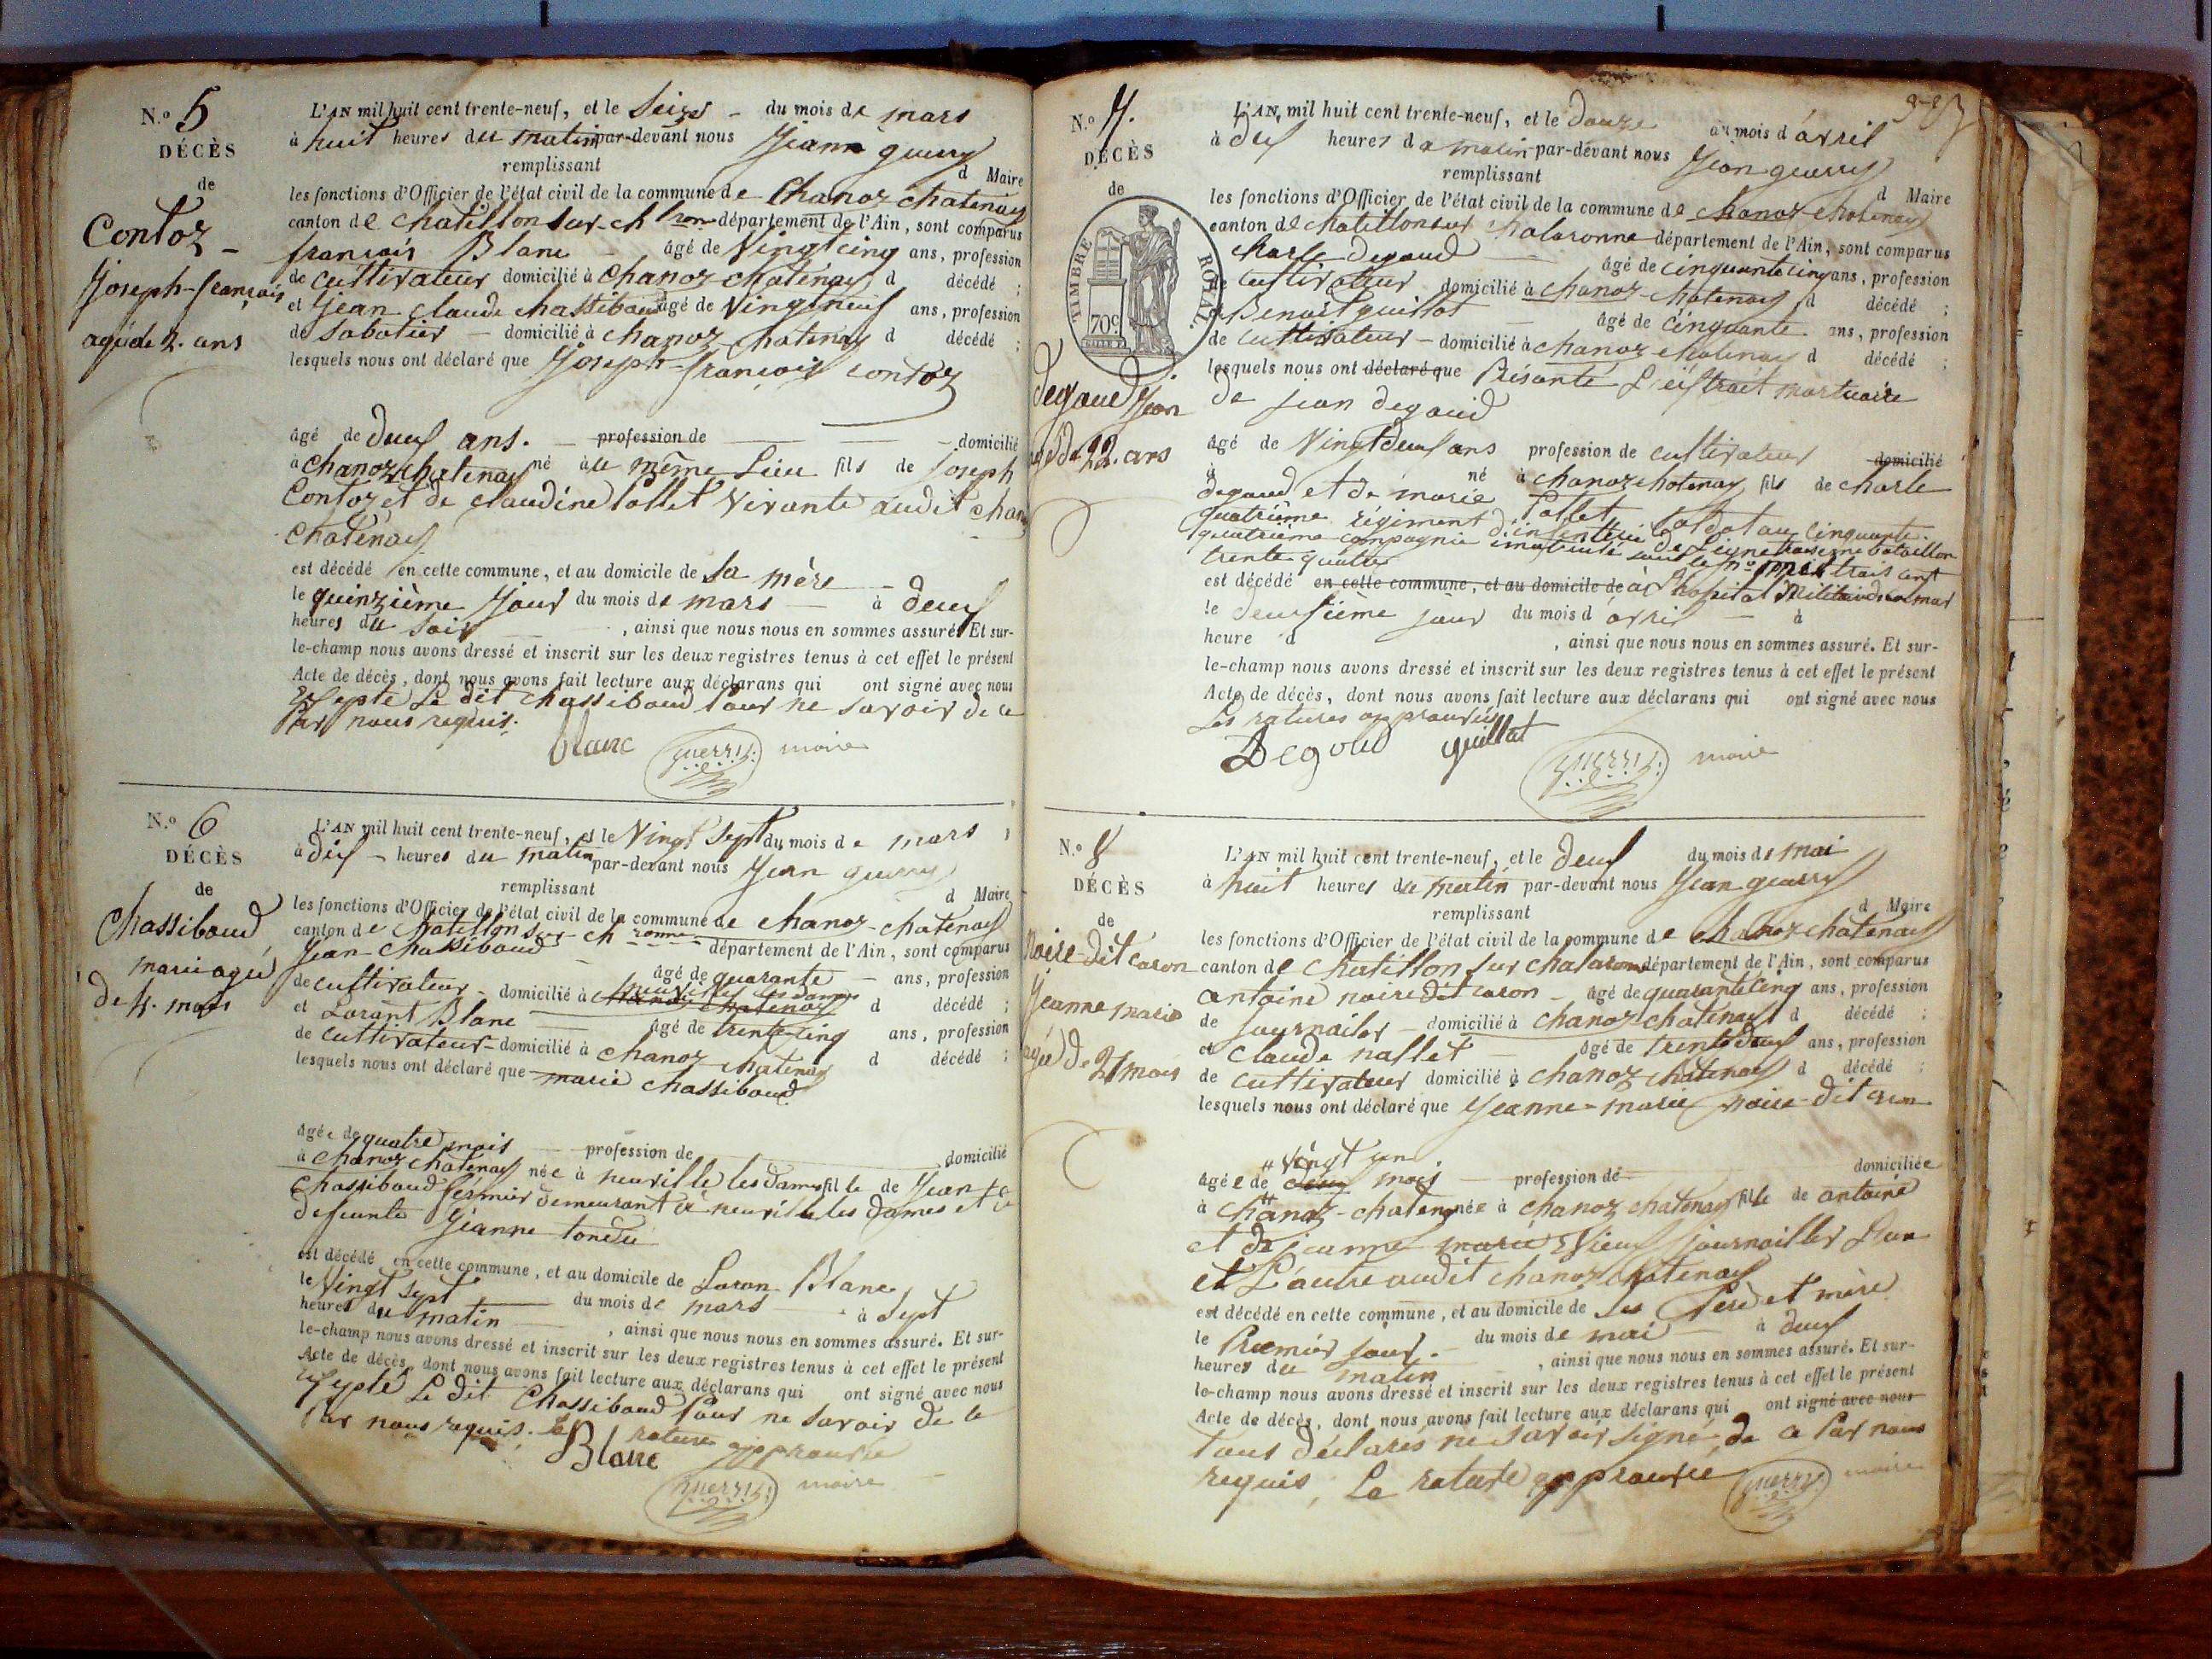 N.o 5
DÉCÈS
de
Contoz -
Joseph-françois
agé de 2. ans
L'AN mil huit cent trente-neuf, et le Seize - du mois de mars
à huit heures du matin par-devant nous Jean guerry
remplissant d Maire
les fonctions d'Officier de l'état civil de la commune de Chanoz chatenay
canton de chatillon sur-ch ronne département de l'Ain, sont comparus
françois Blanc - âgé de Vingt cinq ans, profession
de cultivateur domicilié à Chanoz chatenay d décédé ;
et Jean claude chassiboud âgé de Vingt neuf ans, profession
de Sabotier - domicilié à chanoz chatenay d décédé ;
lesquels nous ont déclaré que Joseph-françois contoz
âgé de deux ans. - profession de - domicilié
à chanoz chatenay né au même Lieu fils de joseph
Contoz et de claudine Pollet Vivante audit chanoz
chatenay
est décédé en cette commune, et au domicile de Sa mère
le quinzième Jour du mois de mars - à deux
heures du Soir , ainsi que nous nous en sommes assuré. Et sur-
le-champ nous avons dressé et inscrit sur les deux registres tenus à cet effet le présent
Acte de décès, dont nous avons fait lecture aux déclarans qui ont signé avec nous
Exsepté Le dit chassiboud Pour ne Savoir de ce
Par nous requis.
blanc guerry maire
N.o 6
DÉCÈS
de
Chassiboud
marie agée
de 4. mois
L'AN mil huit cent trente-neuf, et le Vingt Sept du mois de mars
à dix - heures du matin par-devant nous Jean guerry
remplissant d Maire
les fonctions d'Officier de l'état civil de la commune de chanoz-chatenay
canton de chatillon sur ch ronne département de l'Ain, sont comparus
Jean chassiboud - âgé de quarante - ans, profession
neuville les dames
de cultivateur - domicilié à chanoz chatenay d décédé ;
et Lorant Blanc - âgé de trente-cinq ans, profession
de cultivateur - domicilié à chanoz chatenay d décédé ;
lesquels nous ont déclaré que marie chassiboud
âgée de quatre mois - profession de domicilié
à chanoz chatenay née à neuville les dames fille de Jean
chassiboud fermier demeurant à neuville les dames et de
defeunte Jeanne tondu
est décédé en cette commune, et au domicile de Loran Blanc
le Vingt Sept - du mois de mars - à Sept
heures du matin , ainsi que nous nous en sommes assuré. Et sur-
le-champ nous avons dressé et inscrit sur les deux registres tenus à cet effet le présent
Acte de décès, dont nous avons fait lecture aux déclarans qui ont signé avec nous
Exsepté Le dit chassiboud Pour ne Savoir de ce
Par nous requis. La rature approuvée
Blanc
guerry maire
N.o 7.
DÉCÈS
de
TIMBRE ROYAL.
70c
degoud Jean
agé de 22. ans
L'AN mil huit cent trente-neuf, et le douze du mois d'avril
à dix heures du matin par-devant nous Jean guerry
remplissant d Maire
les fonctions d'Officier de l'état civil de la commune de chanoz chatenay
canton de chatillon sur chalaronne département de l'Ain, sont comparus
charle degoud - âgé de cinquante cinq ans, profession
de cultivateur domicilié à chanoz-chatenay d décédé ;
Benoit guillot - âgé de cinquante ans, profession
de cultivateur - domicilié à chanoz chatenay d décédé ;
lesquels nous ont déclaré que Présenté L'extrait mortuaire
de jean degoud
âgé de Vingt deux ans profession de cultivateur domicilié
à né à chanoz chatenay fils de charle
degoud et de marie Pollet Soldat au cinquante
quatrième régiment d'infenterie de Ligne troisieme bataillon
quatrième compagnie imatriculé sous le no trois cent
trente quatre
est décédé en cette commune, et au domicile de à L'hospital Militaire
le deuxième jour du mois d avril - à
heure d , ainsi que nous nous en sommes assuré. Et sur-
le-champ nous avons dressé et inscrit sur les deux registres tenus à cet effet le présent
Acte de décès, dont nous avons fait lecture aux déclarans qui ont signé avec nous
Les ratures approuvées
Degoud guillot
guerry maire
N.o 8
DÉCÈS
de
Noire dit caron
Jeanne marie
agée de 21 mois
L'AN mil huit cent trente-neuf, et le deux du mois de mai
à huit heures du matin par-devant nous Jean guerry
remplissant d Maire
les fonctions d'Officier de l'état civil de la commune de chanoz chatenay
canton de chatillon sur chalaronne département de l'Ain, sont comparus
antoine noire dit caron - âgé de quarante cinq ans, profession
de journailer - domicilié à chanoz chatenay d décédé ;
et claude nallet - âgé de trente deux ans, profession
de cultivateur domicilié à chanoz chatenay d décédé ;
lesquels nous ont déclaré que Jeanne-marie noire-dit caron
" Vingt un
âgée de deux mois - profession de domiciliée
à chanoz-chatenay née à chanoz chatenay fille de antoine
et de jeanne marie Vieux journailler L'un
et L'autre audit chanoz chatenay
est décédé en cette commune, et au domicile de Ses Père et mère
le Premier jour. - du mois de mai - à deux
heures du matin , ainsi que nous nous en sommes assuré. Et sur-
le-champ nous avons dressé et inscrit sur les deux registres tenus à cet effet le présent
Acte de décès, dont nous avons fait lecture aux déclarans qui ont signé avec nous
tous déclarés ne Savoir signé de ce Par nous
requis, La rature approuvée guerry maire